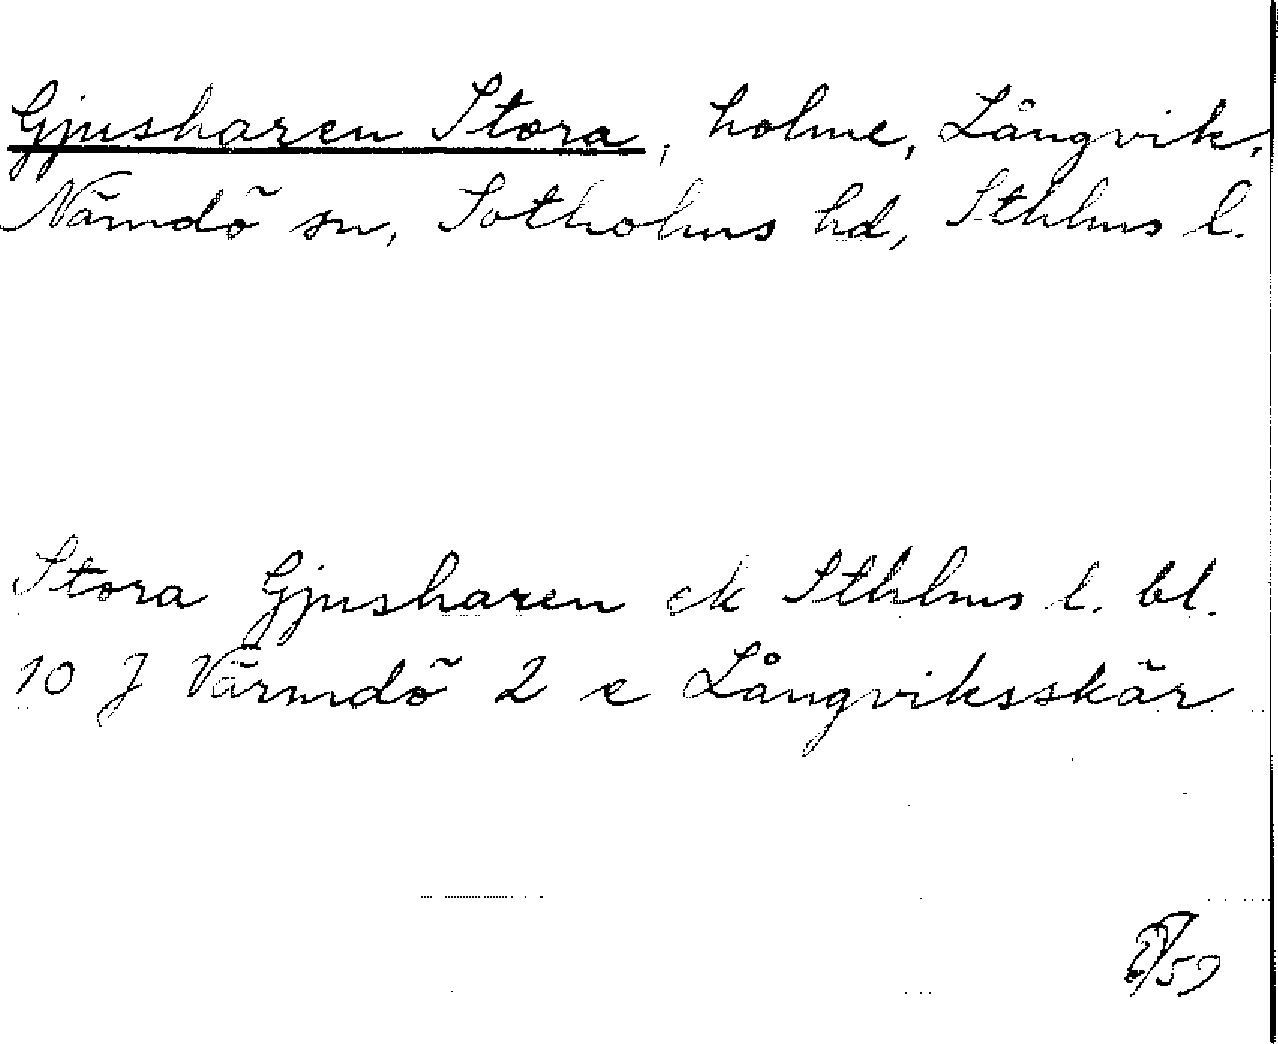 Gjusharen Stora, holme, Långvik,
Nämdö sn, Sotholms hd, Sthlms l.
Stora Gjusharen ek Sthlms l. bl.
10 J Värmdö 2 e Långviksskär